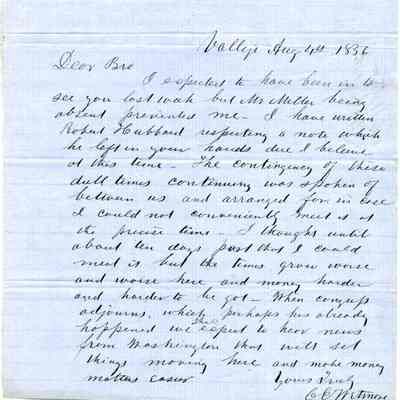 Vallejo Aug 4st 1856
Dear Bro
I expected to have been in to
see you last week but Mr Miller being
absent prevented me - I have written
Robert Hubbard respecting a note which
he left in your hands due I believe
at this time - The contingency of these
dull times continuing was spoken of
between us and arranged for in case
I could not conveniently meet it at
the precise time - I thought until
about ten days past that I could
meet it but the times grow worse
and worse here and money harder
and harder to be got - When congress
adjourns, which perhaps has already
happened we then expect to hear news
from Washington that will set
things moving here and make money
matters easier
Yours Truly